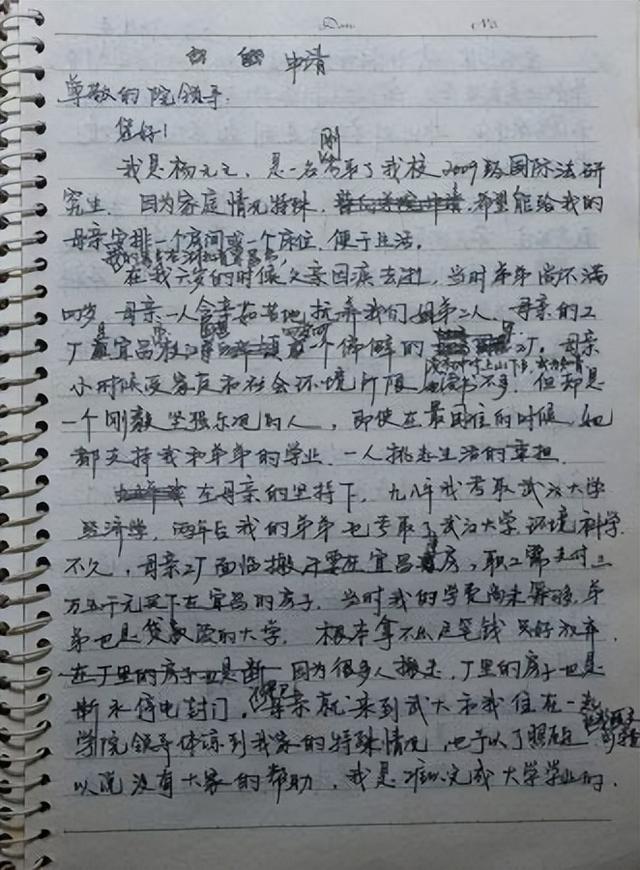 Date No.
申请
尊敬的院领导：
您好！
刚
我是杨元元，是一名考取了我校2009级国际法研
究生。因为家庭情况特殊，希望能给我的
母亲安排一个房间或一个床位，便于生活。
在我六岁的时候父亲因病去逝，当时弟弟尚不满
四岁，母亲一人含辛茹苦地抚养我们姐弟二人，母亲的工
厂是宜昌枝江 一个偏僻的 工厂。母亲
小时候受家庭和社会环境所限 读书不多，但却是
一个刚毅坚强乐观的人，即使在最困难的时候，她
都支持我和弟弟的学业，一人挑起生活的重担。
在母亲的坚持下，九八年我考取武汉大学
经济学，两年后我的弟弟也考取了武汉大学环境科学。
不久，母亲工厂面临搬 要在宜昌 房，职工需支付三
万五千元买下在宜昌的房子。当时我的学费尚未筹够，弟
弟也是贷款读的大学。根本拿不出这笔钱只好放弃，
在厂里的房子也是断 因为很多人搬走，厂里的房子也是
断水停电封门，母亲就来到武大和我住在一起
学院领导体谅到我家的特殊情况，也予以了照顾
以说没有大家的帮助，我是难以完成大学学业的。